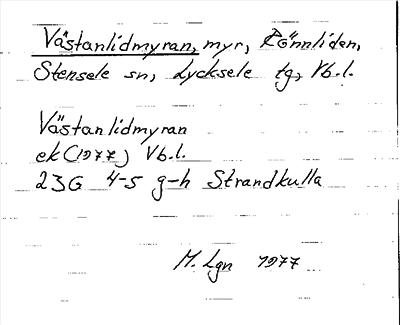 Västanlidmyran, myr, Rönnliden,
Stensele sn, Lycksele tg, Vb.l.
Västanlidmyran
ek (1977) Vb.l.
23G 4-5 g-h Strandkulla
M. Lgn 1977